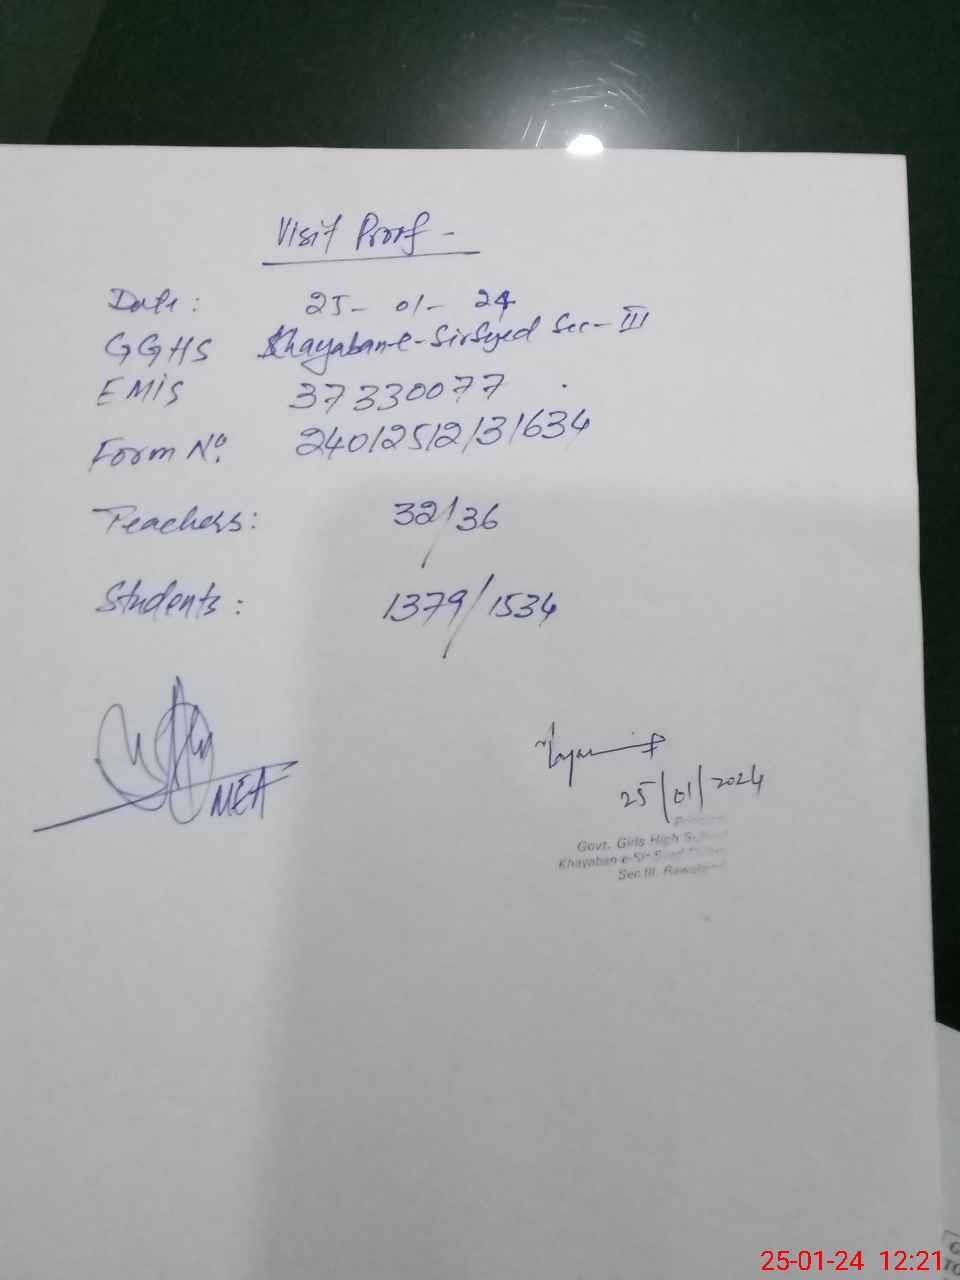 Visit Proof -
Date: 25- 01- 24
GGHS Khayaban-e-SirSyed Sec-III
EMIS 37330077
Form No. 24012512131634
Teachers: 32/36
Students: 1379/1534
MEA
25/01/2024
Govt. Girls High
Khayaban-e-Sir
Sec.III
25-01-24 12:21